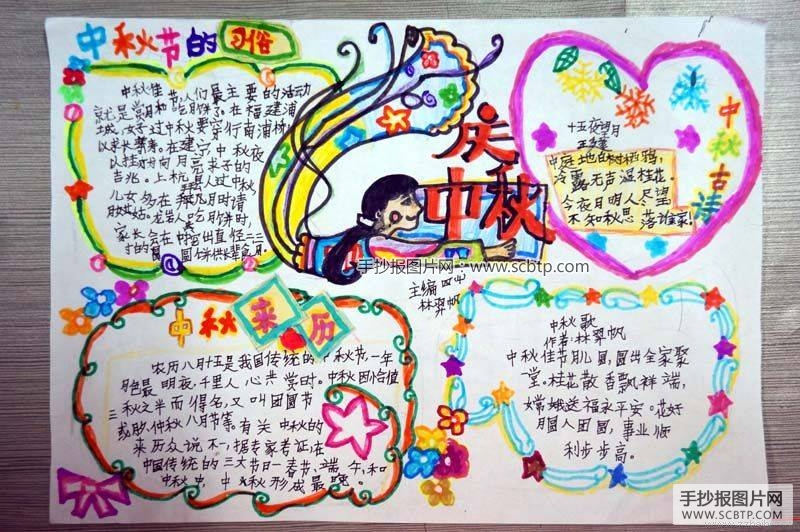 中秋节的
习俗
中秋佳节人们最主要的活动
就是赏月和吃月饼了。在福建浦
城,女子过中秋要穿行南浦桥,
以求长寿。在建宁中秋夜
以挂灯为向月宫求子的
吉兆。上杭县人过中秋
儿女多在拜月时请
月姑。龙岩人吃月饼时,
家长会在中央挖出直径二三
寸的圆饼供长辈食用。
庆
中秋
主编 四
林翠帆
中秋古诗
十五夜望月
王建
中庭地白树栖鸦,
冷露无声湿桂花。
今夜月明人尽望
不知秋思落谁家!
手抄报图片网:www.scbtp.com
中秋来历
农历八月十五是我国传统的中秋节一年
月色最明夜,千里人心共赏时。中秋因恰值
三秋之半而得名,又叫团圆节
或仲秋八月节等。有关中秋的
来历众说不一,据专家考证,在
中国传统的三大节日—春节、端午、和
中秋中,中秋形成最晚。
中秋歌
作者:林翠帆
中秋佳节月儿圆,圆出全家聚
一堂。桂花散香飘祥瑞,
嫦娥送福永平安。花好
月圆人团圆,事业顺
利步步高。
手抄报图片网
SCBTP.COM